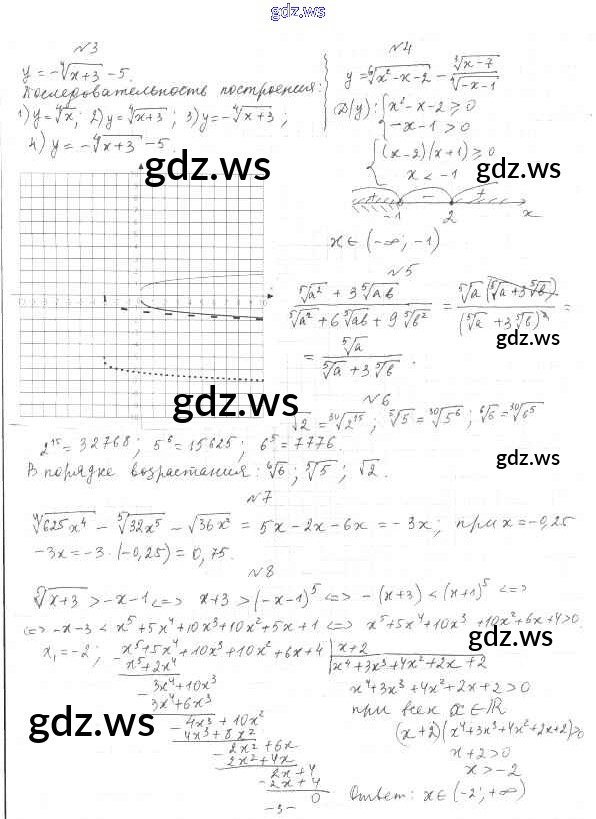 gdz.ws
№3
y = -∜(x+3) - 5.
Последовательность построения:
1) y = ∜x; 2) y = ∜(x+3); 3) y = -∜(x+3);
4) y = -∜(x+3) - 5.
gdz.ws
№4
y = ⁶√(x²-x-2) - ∛(x-7)/∜(-x-1)
D(y): { x²-x-2 ≥ 0
-x-1 > 0
{ (x-2)(x+1) ≥ 0
x < -1
gdz.ws
+ - +
-1 2 x
x ∈ (-∞; -1)
№5
(⁵√a² + 3⁵√ab)/(⁵√a² + 6⁵√ab + 9⁵√b²) = ⁵√a(⁵√a + 3⁵√b)/(⁵√a + 3⁵√b)² =
= ⁵√a/(⁵√a + 3⁵√b).
gdz.ws
gdz.ws
№6
√2 = ³⁰√2¹⁵; ⁵√5 = ³⁰√5⁶; ⁶√6 = ³⁰√6⁵
2¹⁵ = 32768; 5⁶ = 15625; 6⁵ = 7776.
gdz.ws
В порядке возрастания: ⁶√6; ⁵√5; √2.
№7
∜(625x⁴) - ⁵√(32x⁵) - √(36x²) = 5x - 2x - 6x = -3x; при x = -0,25
-3x = -3·(-0,25) = 0,75.
№8
⁵√(x+3) > -x-1 <=> x+3 > (-x-1)⁵ <=> -(x+3) < (x+1)⁵ <=>
<=> -x-3 < x⁵+5x⁴+10x³+10x²+5x+1 <=> x⁵+5x⁴+10x³+10x²+6x+4>0.
gdz.ws
x₁ = -2; x⁵+5x⁴+10x³+10x²+6x+4 | x+2
x⁵+2x⁴ x⁴+3x³+4x²+2x+2
3x⁴+10x³
3x⁴+6x³
4x³+10x²
4x³+8x²
2x²+6x
2x²+4x
2x+4
2x+4
0
gdz.ws
x⁴+3x³+4x²+2x+2>0
при всех x∈ℝ
(x+2)(x⁴+3x³+4x²+2x+2)>0
x+2>0
x>-2
gdz.ws
Ответ: x∈(-2; +∞)
-3-